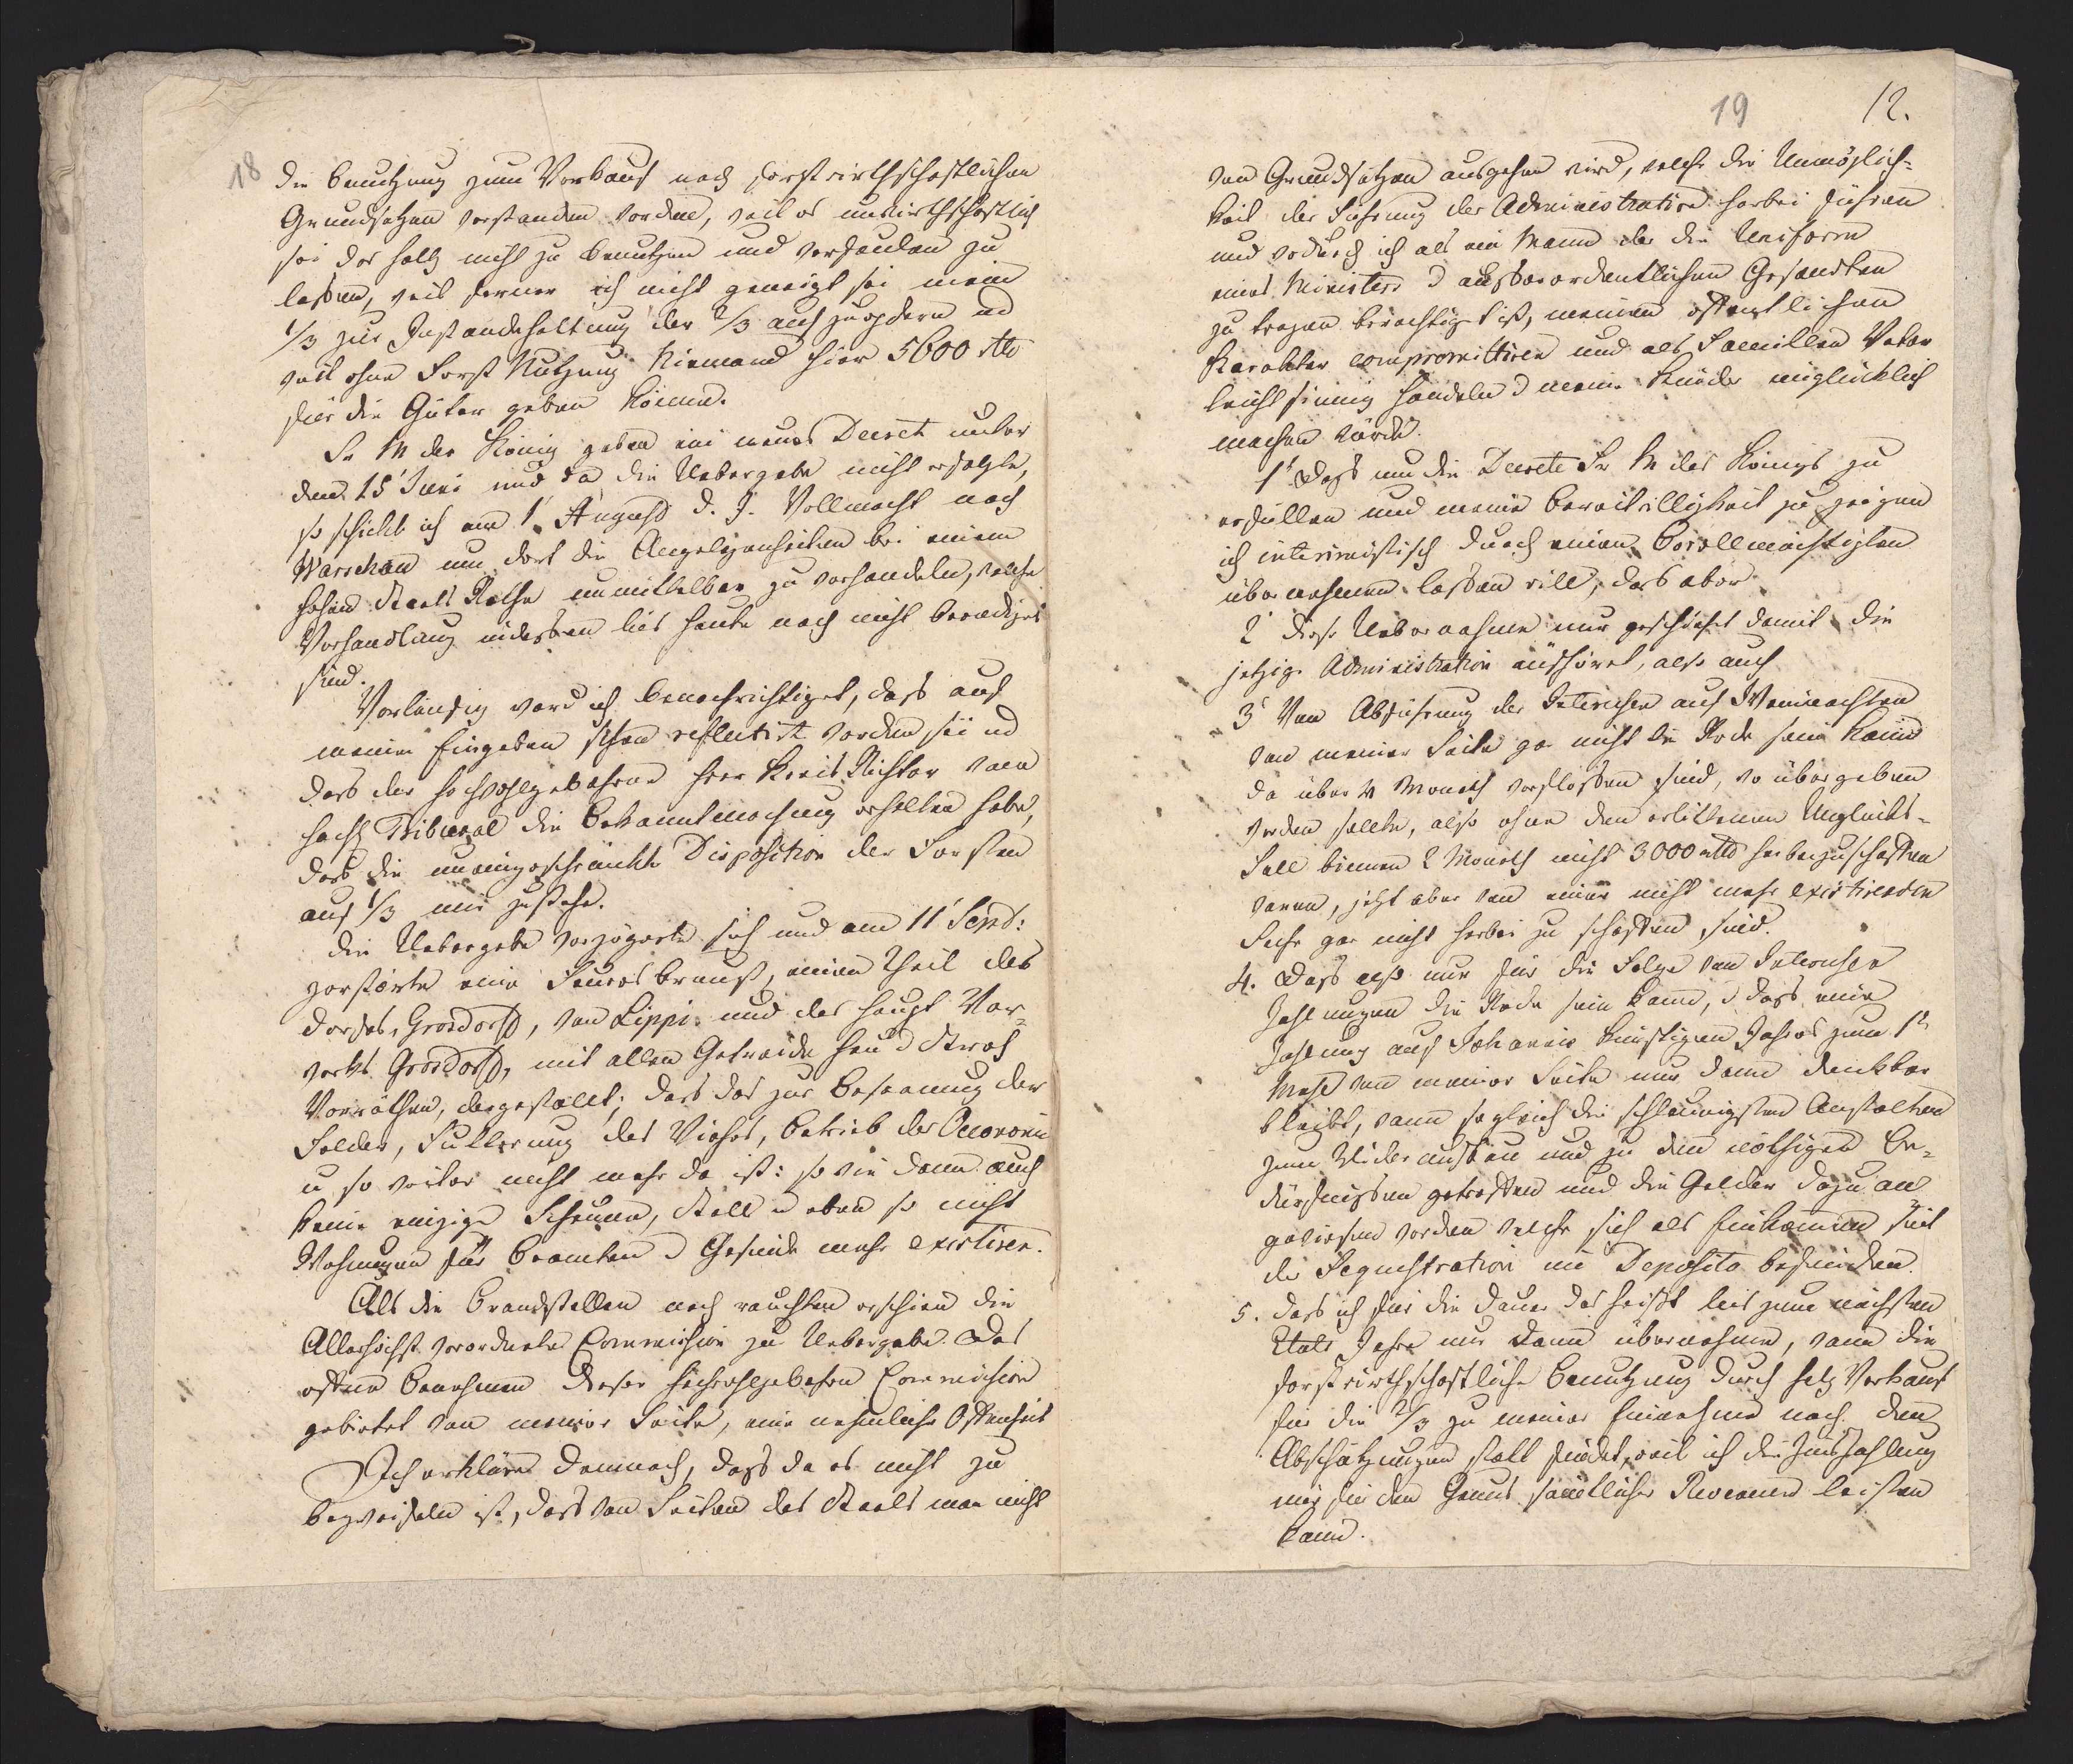 18
die Benutzung zum Verkauf nach forstwirthschaftlichen
Grundsätzen verstanden werden, weil es unwirthschaftlich
sei das Holtz nicht zu benutzen und verfaulen zu
lassen, weil ferner ich nicht geneigt sei mein
1/3 zur Instandehaltung der 2/3 aufzuopfern ud
weil ohne Forst Nutzung Niemand hier 5600 rtlr
für die Güter geben könne.
Se M der König gaben ein neues Decret unter
dem 15 Juni und da die Uebergabe nicht erfolgte,
so schickt ich am 1 August d. J. Vollmacht nach
Warschau um dort die Angelegenheiten bei einem
hohen Staats Rathe unmittelbar zu verhandeln, welche
Verhandlung indessen bis heute noch nicht beendiget
sind.
Vorläufig ward ich benachrichtiget, dass auf
meine Eingaben schon reflectirt worden sei ud
dass der hochwohlgebohrne Herr Kreis Richter vom
hoch Tribunal die Bekanntmachung erhalten habe,
dass die uneingeschränkte Disposition der Forsten
auf 1/3 mir zustehe.
Die Uebergabe verzögerte sich und am 11 Sept:
zerstörte eine Feuersbrunst, einen Theil des
Dorfes Grosdorff, von Lippi und des Haupt Vor-
werks Grosdorff, mit allen Getreide Heu d Stroh
Vorräthen, dergestallt; dass das zur Besaamung der
Felder, Futterung des Viehes, Betrieb der Oeconomie
u so weiter nicht mehr da ist: so wie dann auch
keine einzige Scheune, Stall u eben so nicht
Wohnungen für Beamten d Gesinde mehr existiren.
Als die Brandstellen noch rauchten erschien die
Allerhöchst verordnete Commission zu Uebergabe. Das
offene Benehmen dieser hochwohlgebohrn Commission
gebietet von meiner Seite, eine nehmliche Offenheit
Ich erkläre demnach, dass da es nicht zu
bezweifeln ist, dass von Seiten des Staats man nicht
19 12.
von Grundsätzen ausgehen wird, welche die Unmöglich-
keit der Führung der Administration herbei führen
und wodurch ich als ein Mann der die Uniform
eines Ministers d ausserordentlichen Gesandten
zu tragen berechtigt ist, meinen öffentlichen
Karakter compromittiren und als Familien Vater
leichtsinnig handeln d meine Kinder unglücklich
machen würde.
1 dass um die Decrete Sr M des Königs zu
erfüllen und meine Bereitwilligkeit zu zeigen
ich interimistisch durch einen Bevollmächtigten
übernehmen lassen will, dass aber
2 diese Uebernahme nur geschieht damit die
jetzige Administration aufhöret, also auch
3 Von Abführung der Interessen auf Weinnachten
von meiner Seite gar nicht die Rede sein kann
da über 4 Monath verflossen sind, wo übergeben
werden sollte, also ohne den erlittenen Unglücks-
Fall binnen 2 Monath nicht 3000 rtlr herbeizuschaffen
waren, jetzt aber von einer nicht mehr existirenden
Sache gar nicht herbei zu schaffen sind.
4. Dass also nur für die Folge von Interessen
Zahlungen die Rede sein kann, d dass eine
Zahlung auf Johannis künftigen Jahres zum 1n
Mahl von meiner Seite nur dann denkbar
bleibt, wann sogleich die schleunigsten Anstalten
zum Wideraufbau und zu den nöthigen Be-
dürfnissen getroffen und die Gelder dazu an
gewiesen werden welche sich als Einkommen seit
der Sequestration im Deposito befinden.
5. dass ich für die Dauer das heisst bis zum nächsten
Etats Jahre nur dann übernehme, wann die
forstwirthschaftliche Benutzung durch Holz Verkauf
für die 2/3 zu meiner Einnahme nach den
Abschätzungen statt findet, weil ich die Zinszahlung
nur für den Genus sämtlicher Revenuen leisten
kann.